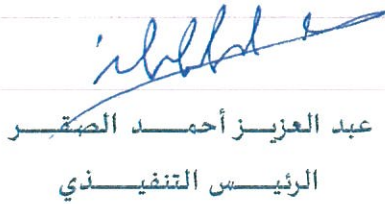 عبد العزيز أحمد الصقر
الرئيس التنفيذي